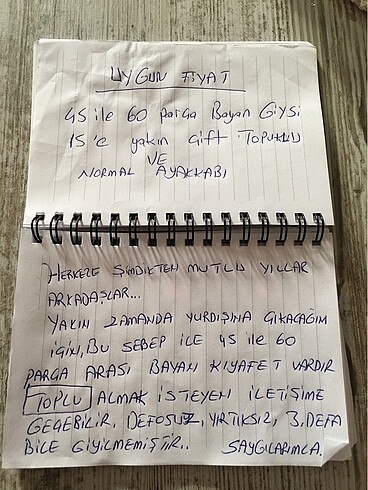 UYGUN FİYAT
45 ile 60 parça Bayan Giysi
15'e yakın çift TOPUKLU
VE
NORMAL AYAKKABI
HERKEZE ŞİMDİKTEN MUTLU YILLAR
ARKADAŞLAR...
YAKIN ZAMANDA YURDIŞINA ÇIKACAĞIM
İÇİN, BU SEBEP İLE 45 ile 60
PARÇA ARASI BAYAN KIYAFET VARDIR
TOPLU ALMAK İSTEYEN İLETİŞİME
GEÇEBİLİR. DEFOSUZ, YIRTIKSIZ, 3. DEFA
BİLE GİYİLMEMİŞTİR.. SAYGILARIMLA.